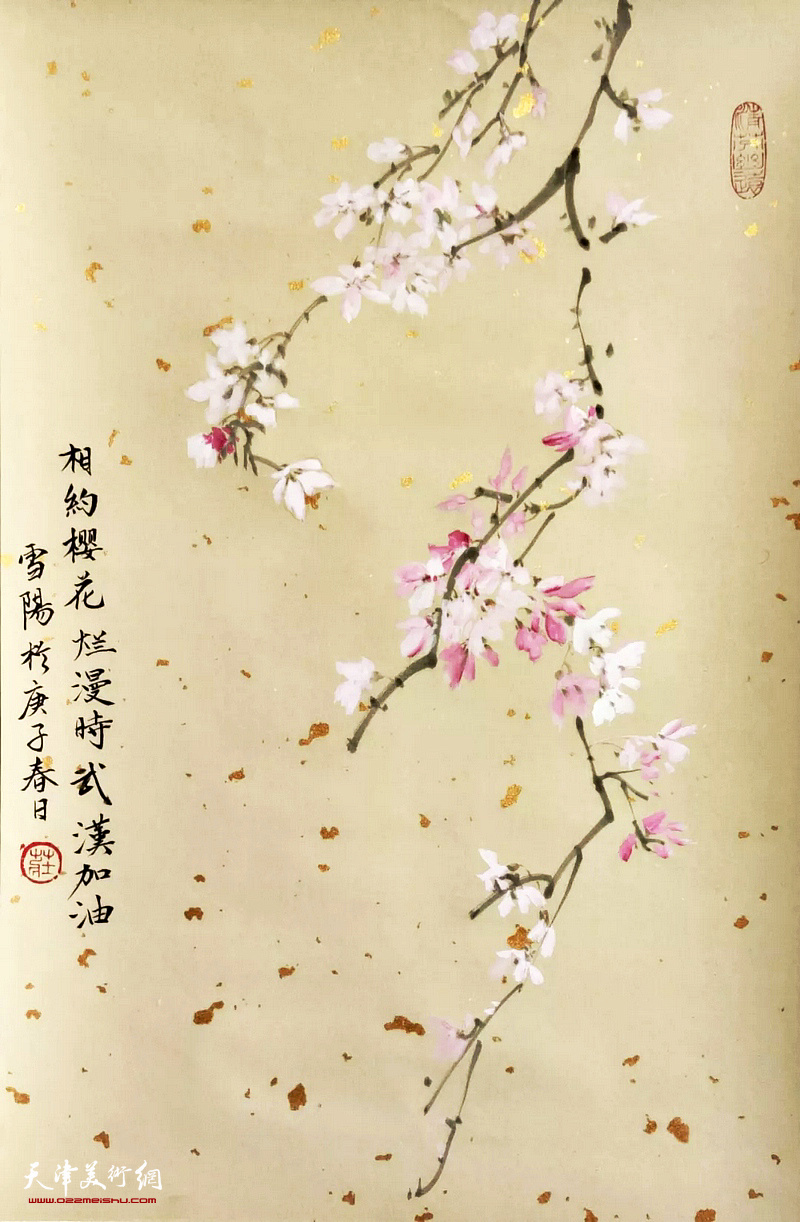 相約櫻花烂漫時武漢加油
雪陽於庚子春日
莊
天津美術網
www.022meishu.com